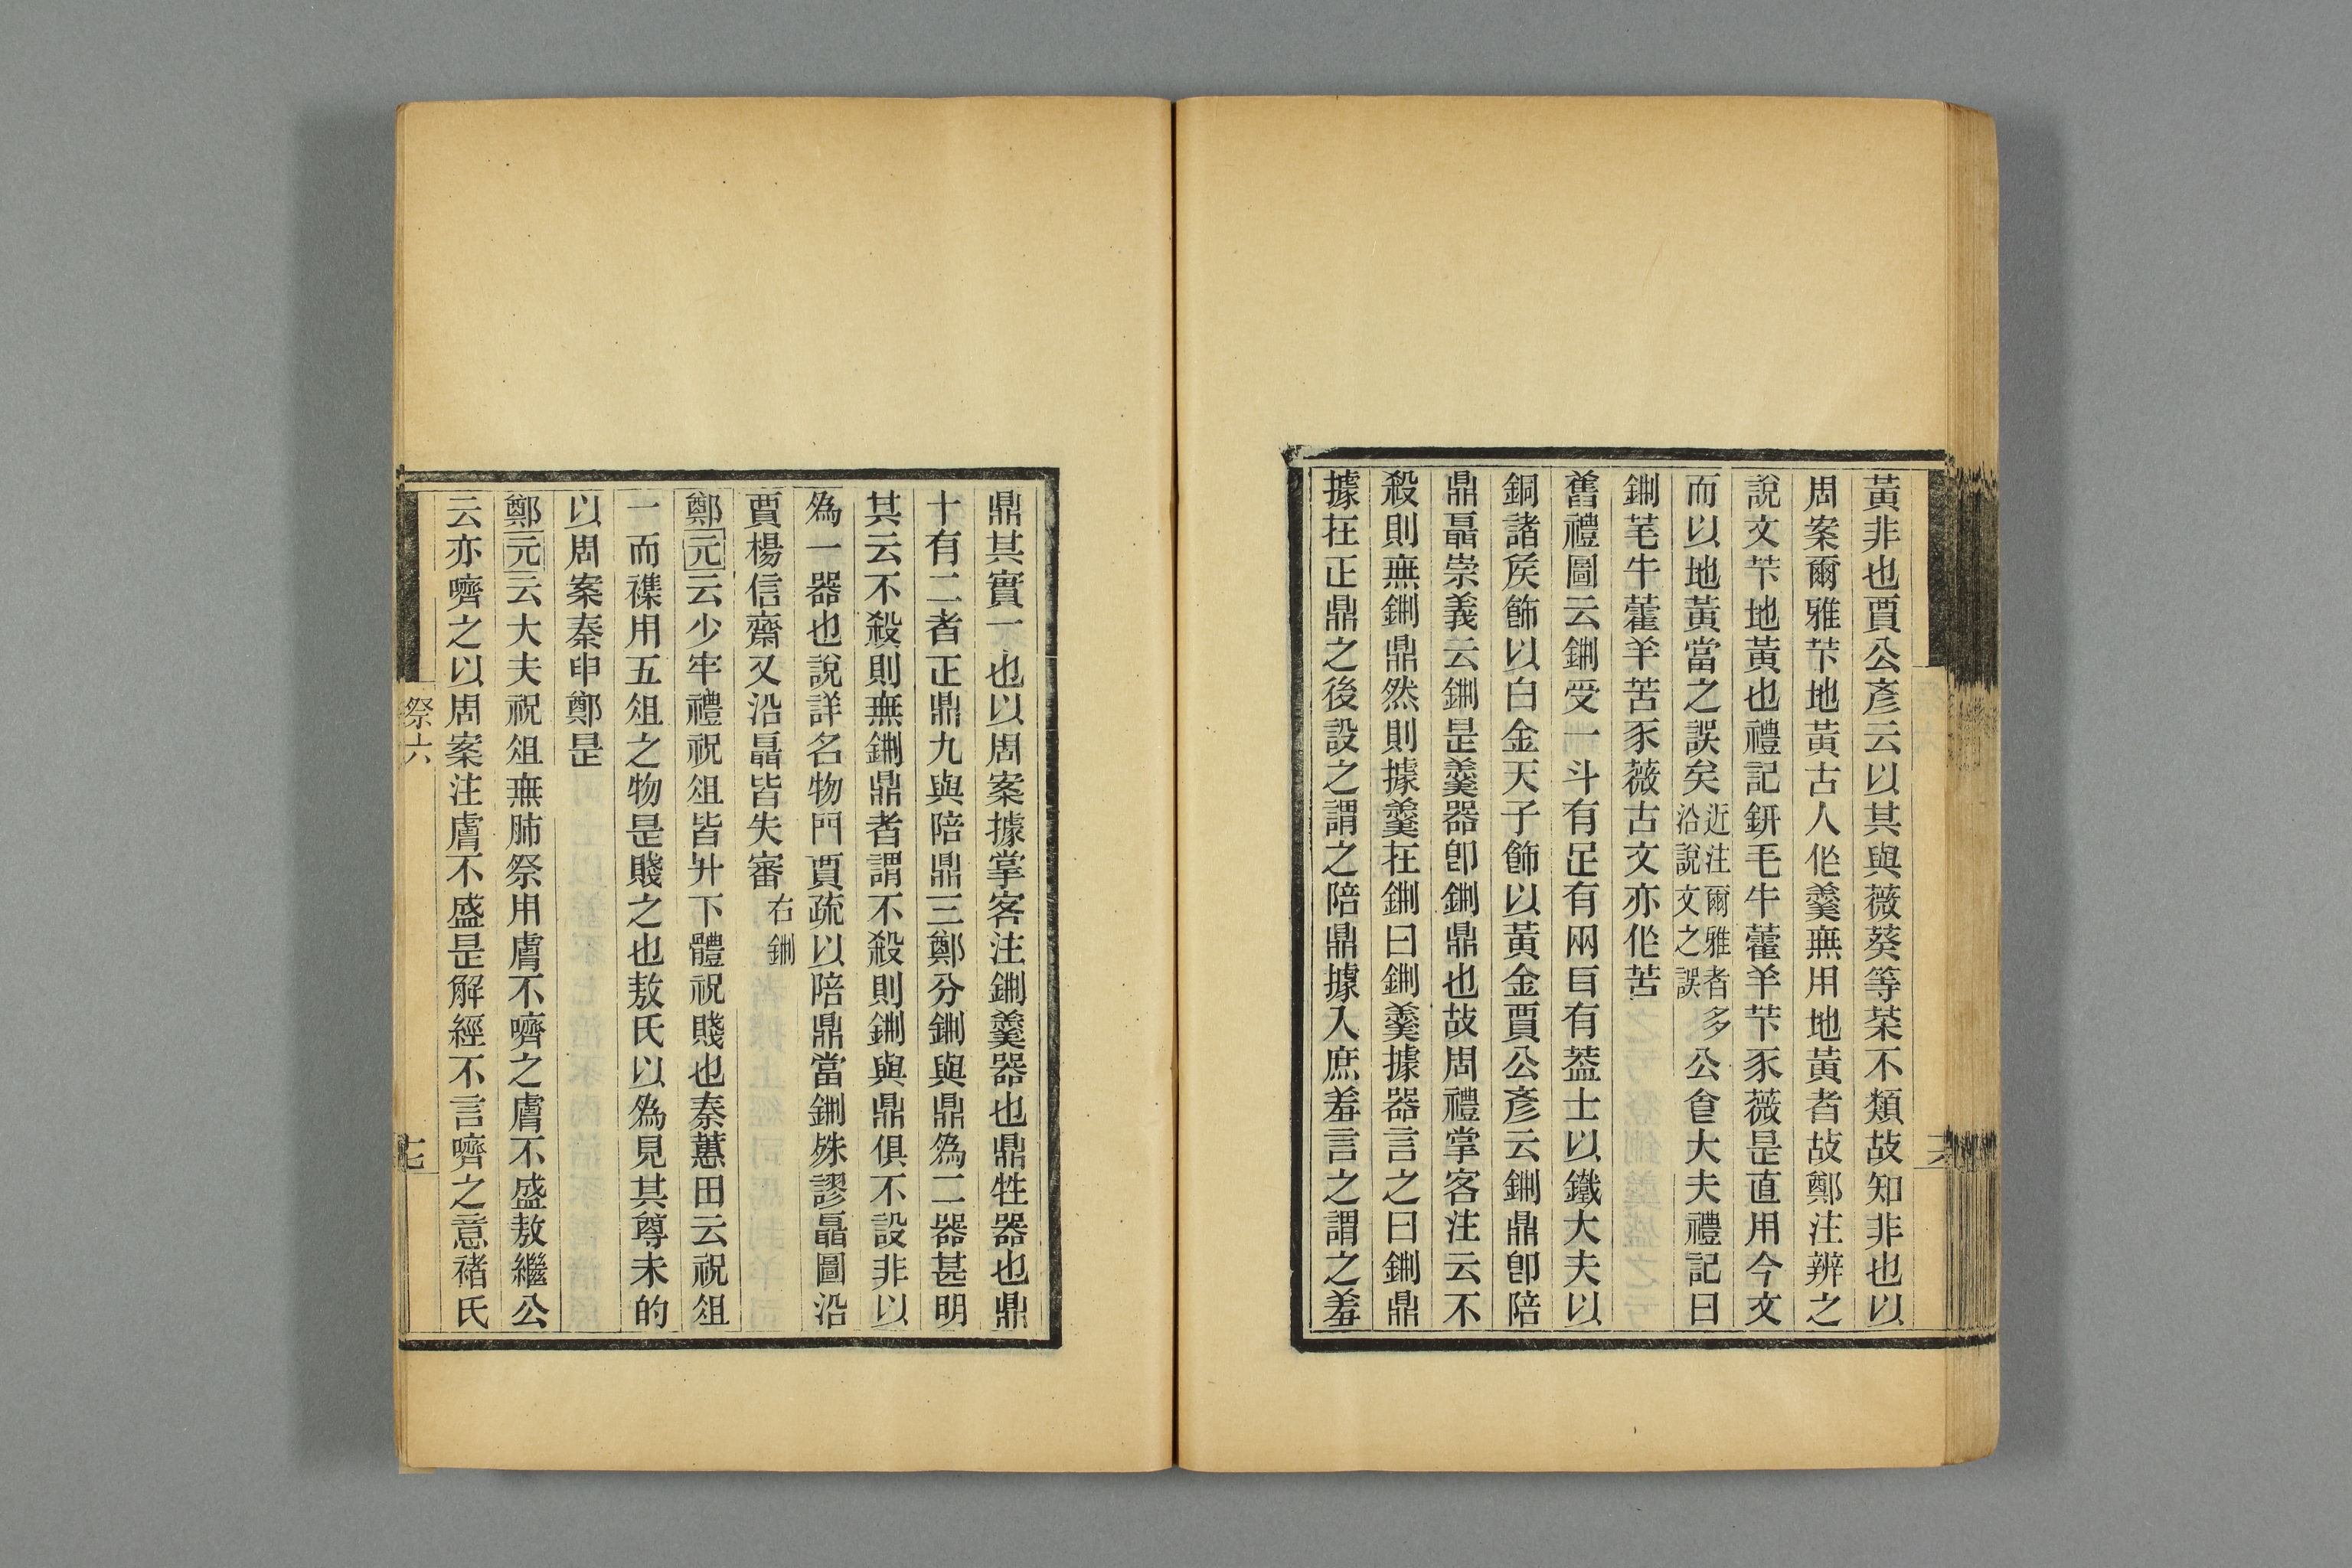 黃非也賈公彥云以其與薇葵等菜不類故知非也以
周案爾雅芐地黃古人作羹無用地黃者故鄭注辨之
說文芐地黃也禮記鈃毛牛藿羊芐豕薇是直用今文
而以地黃當之誤矣近注爾雅者多沿說文之誤公食大夫禮記曰
鉶芼牛藿羊苦豕薇古文亦作苦
舊禮圖云鉶受一斗有足有兩耳有蓋士以鐵大夫以
銅諸矦飾以白金天子飾以黃金賈公彥云鉶鼎卽陪
鼎聶崇義云鉶是羹器卽鉶鼎也故周禮掌客注云不
殺則無鉶鼎然則據羹在鉶曰鉶羹據器言之曰鉶鼎
據在正鼎之後設之謂之陪鼎據入庶羞言之謂之羞
鼎其實一也以周案據掌客注鉶羹器也鼎牲器也鼎
十有二者正鼎九與陪鼎三鄭分鉶與鼎爲二器甚明
其云不殺則無鉶鼎者謂不殺則鉶與鼎俱不設非以
爲一器也說詳名物門賈疏以陪鼎當鉶殊謬聶圖沿
賈楊信齋又沿聶皆失審右鉶
鄭元云少牢禮祝俎皆升下體祝賤也秦蕙田云祝俎
一而襍用五俎之物是賤之也敖氏以爲見其尊未的
以周案秦申鄭是
鄭元云大夫祝俎無肺祭用膚不嚌之膚不盛敖繼公
云亦嚌之以周案注膚不盛是解經不言嚌之意褚氏
祭六
七